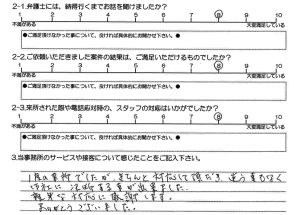 2-1.弁護士には、納得行くまでお話を聞けましたか?
1 2 3 4 5 6 7 8 9 10
不満がある 大変満足している
●ご満足頂けなかった事について、良ければ具体的にお聞かせ下さい。●
2-2.ご依頼いただきました案件の結果は、ご満足いただけるものでしたか?
1 2 3 4 5 6 7 8 9 10
不満がある 大変満足している
●ご満足頂けなかった事について、良ければ具体的にお聞かせ下さい。●
2-3.来所された際や電話応対時の、スタッフの対応はいかがでしたか?
1 2 3 4 5 6 7 8 9 10
不満がある 大変満足している
●ご満足頂けなかった事について、良ければ具体的にお聞かせ下さい。●
3.当事務所のサービスや接客について感じたことをご記入下さい。
きちんと対応して頂き
決断する事が出来ました。
感謝します。
ありがとうございました。